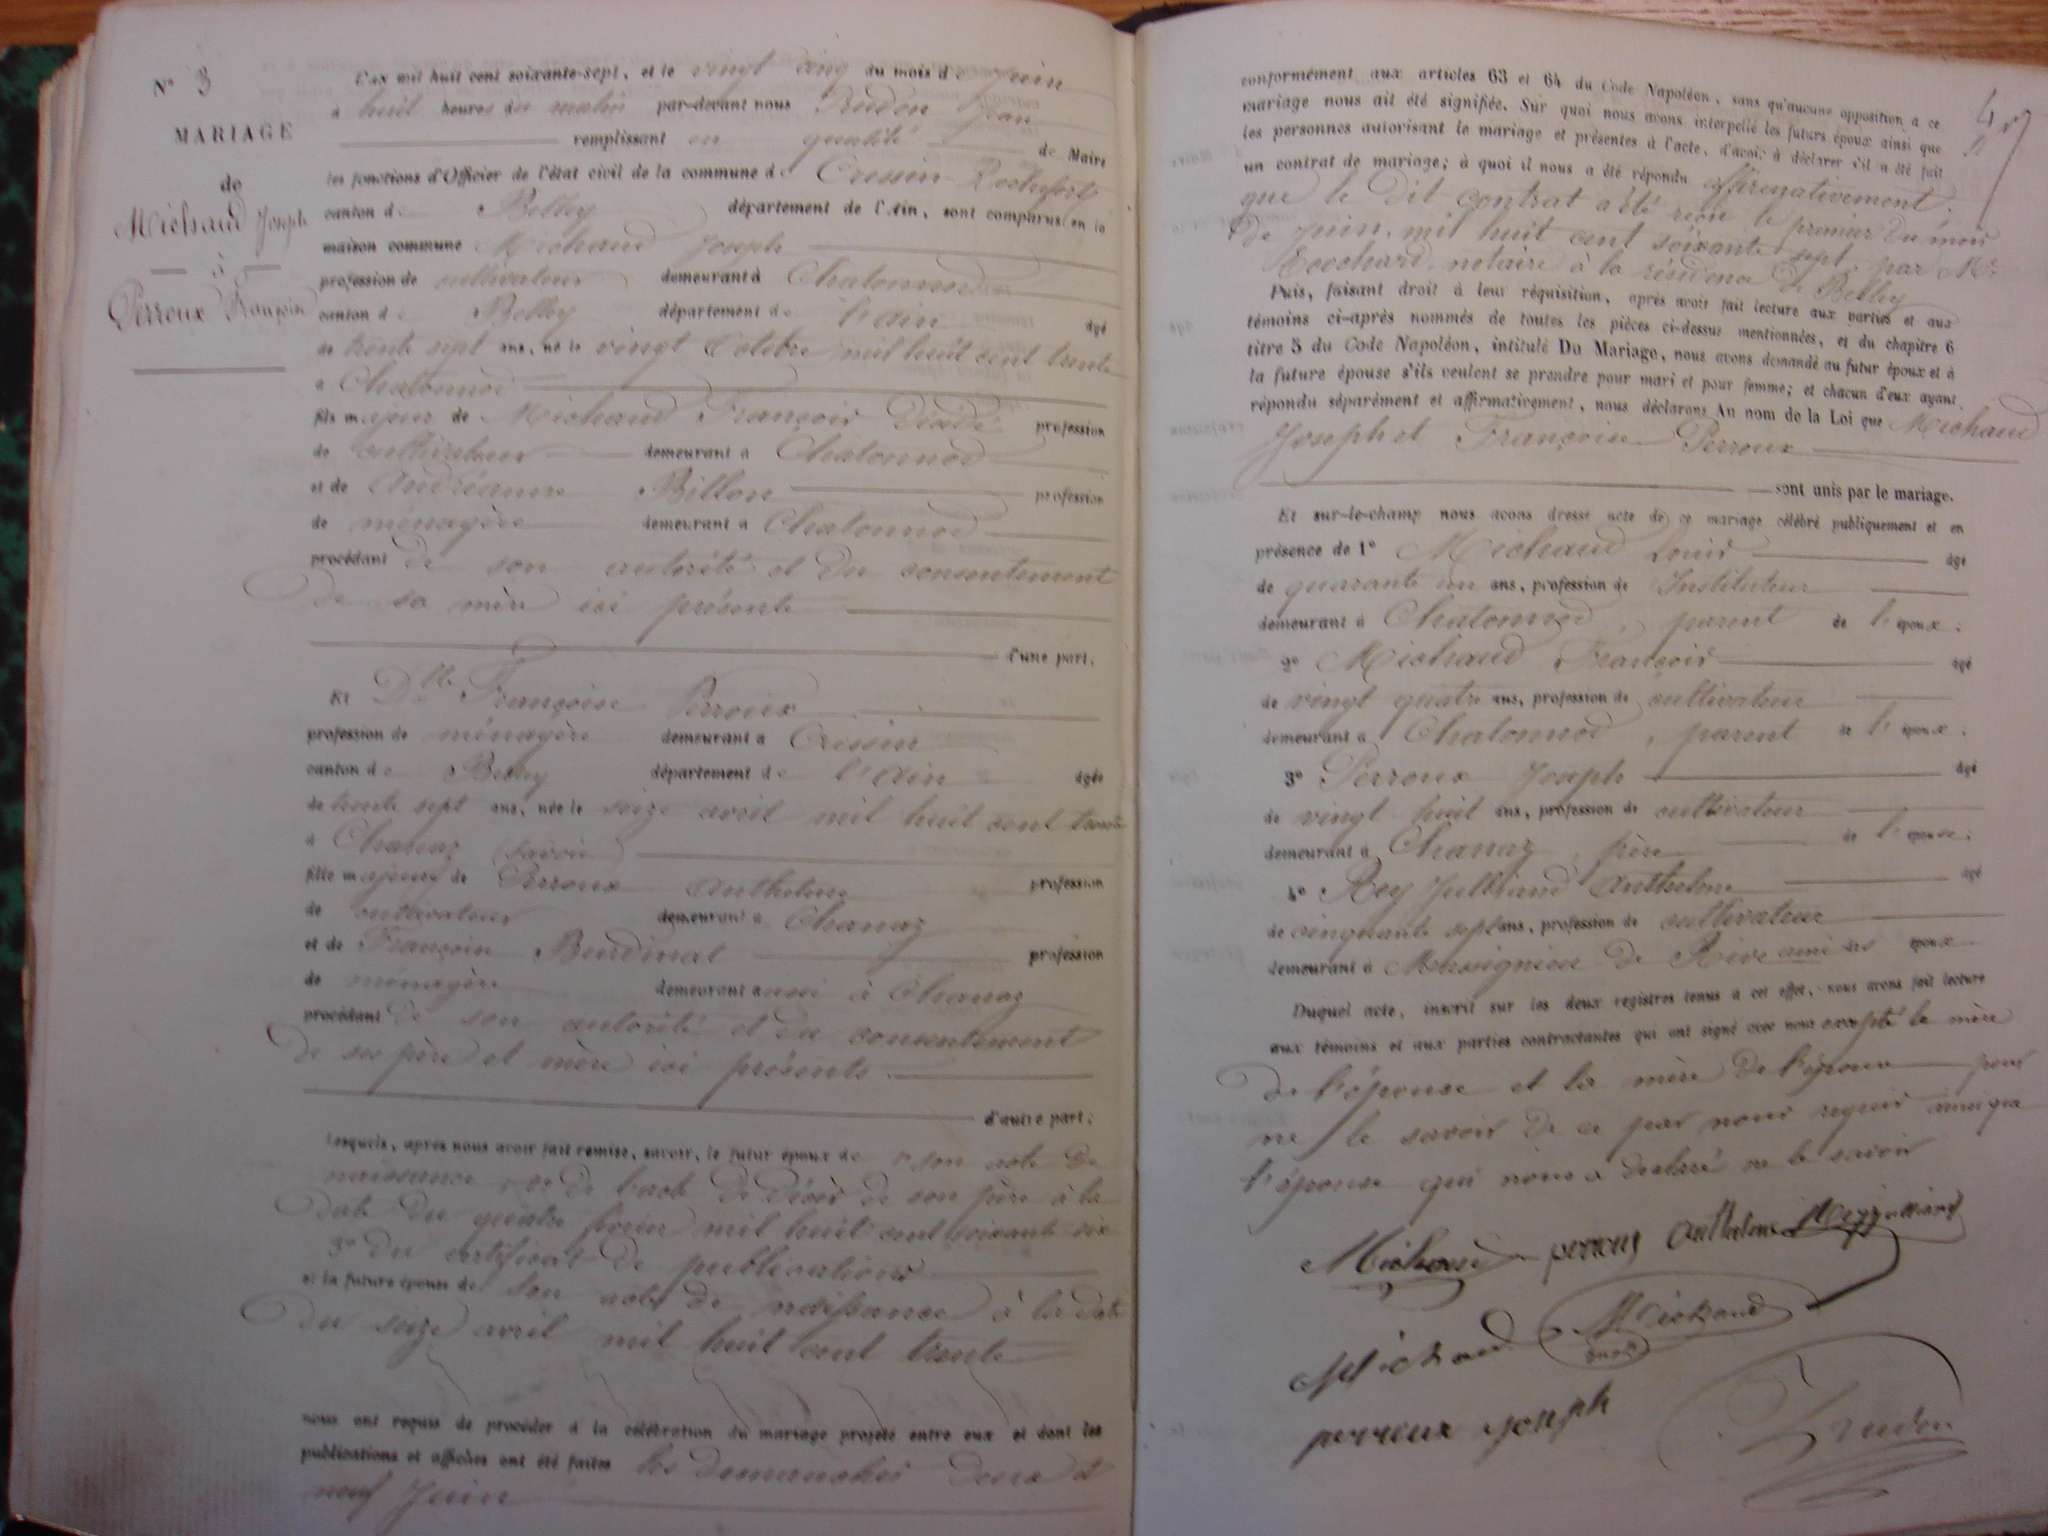 N° 3
MARIAGE
de
Michaud Joseph
à
Perroux Françoise
L'an mil huit cent soixante-sept, et le vingt cinq du mois de juin
à huit heures du matin par-devant nous Prudon Jean
remplissant en qualité de Maire
les fonctions d'Officier de l'état civil de la commune de Cressin-Rochefort
canton de Belley département de l'Ain, sont comparus en la
maison commune Michaud Joseph
profession de cultivateur demeurant à Chatonnod
canton de Belley département de l'ain âgé
de trente sept ans, né le vingt Octobre mil huit cent trente
à Chatonnod
fils majeur de Michaud François profession
de cultivateur demeurant à Chatonnod
et de Andréanne Billon profession
de ménagère demeurant à Chatonnod
procédant de son autorité et du consentement
de sa mère ici présente
d'une part.
Et Dlle Françoise Perroux
profession de ménagère demeurant à Cressin
canton de Belley département de l'ain âgée
de trente sept ans, née le seize avril mil huit cent trente
à Chanaz (savoie)
fille majeure de Perroux Anthelme profession
de cultivateur demeurant à Chanaz
et de Françoise Burdinat profession
de ménagère demeurant aussi à Chanaz
procédant de son autorité et du consentement
de ses père et mère ici présents.
d'autre part;
Lesquels, après nous avoir fait remise, savoir, le futur époux de 1° son acte de
naissance, 2° de l'acte de décès de son père à la
date du quatre mil huit cent soixante six
3° du certificat de publications
et la future épouse de son acte de naissance à la date
du seize avril mil huit cent trente
nous ont requis de procéder à la célébration du mariage projeté entre eux et dont les
publications et affiches ont été faites les dimanches deux et
neuf Juin
conformément aux articles 63 et 64 du Code Napoléon, sans qu'aucune opposition à ce
mariage nous ait été signifiée. Sur quoi nous avons interpellé les futurs époux ainsi que
les personnes autorisant le mariage et présentes à l'acte, d'avoir à déclarer s'il a été fait
un contrat de mariage; à quoi il nous a été répondu affirmativement;
que le dit contrat a été reçu le premier du mois
de juin, mil huit cent soixante sept, par Me
notaire à la résidence de Belley
Puis, faisant droit à leur réquisition, après avoir fait lecture aux parties et aux
témoins ci-après nommés de toutes les pièces ci-dessus mentionnées, et du chapitre 6
titre 5 du Code Napoléon, intitulé Du Mariage, nous avons demandé au futur époux et à
la future épouse s'ils veulent se prendre pour mari et pour femme; et chacun d'eux ayant
répondu séparément et affirmativement, nous déclarons Au nom de la Loi que Michaud
Joseph et Françoise Perroux
sont unis par le mariage.
Et sur-le-champ nous avons dressé acte de ce mariage célébré publiquement et en
présence de 1° Michaud Louis âgé
de quarante un ans, profession de Instituteur
demeurant à Chatonnod, parent de l'époux;
2° Michaud François âgé
de vingt quatre ans, profession de cultivateur
demeurant à Chatonnod, parent de l'époux;
3° Perroux Joseph âgé
de vingt huit ans, profession de cultivateur
demeurant à Chanaz, frère de l'épouse;
4° Rey Julliand Anthelme âgé
de cinquante sept ans, profession de cultivateur
demeurant à Massignieu de Rive ami des époux
Duquel acte, inscrit sur les deux registres tenus à cet effet, nous avons fait lecture
aux témoins et aux parties contractantes qui ont signé avec nous excepté la mère
de l'épouse et la mère de l'époux pour
ne le savoir de ce par nous requis ainsi que
l'épouse qui nous a déclaré ne le savoir
Michaud perroux Anthelme Reyjulliand
Michaud Michaud
perroux joseph Prudon